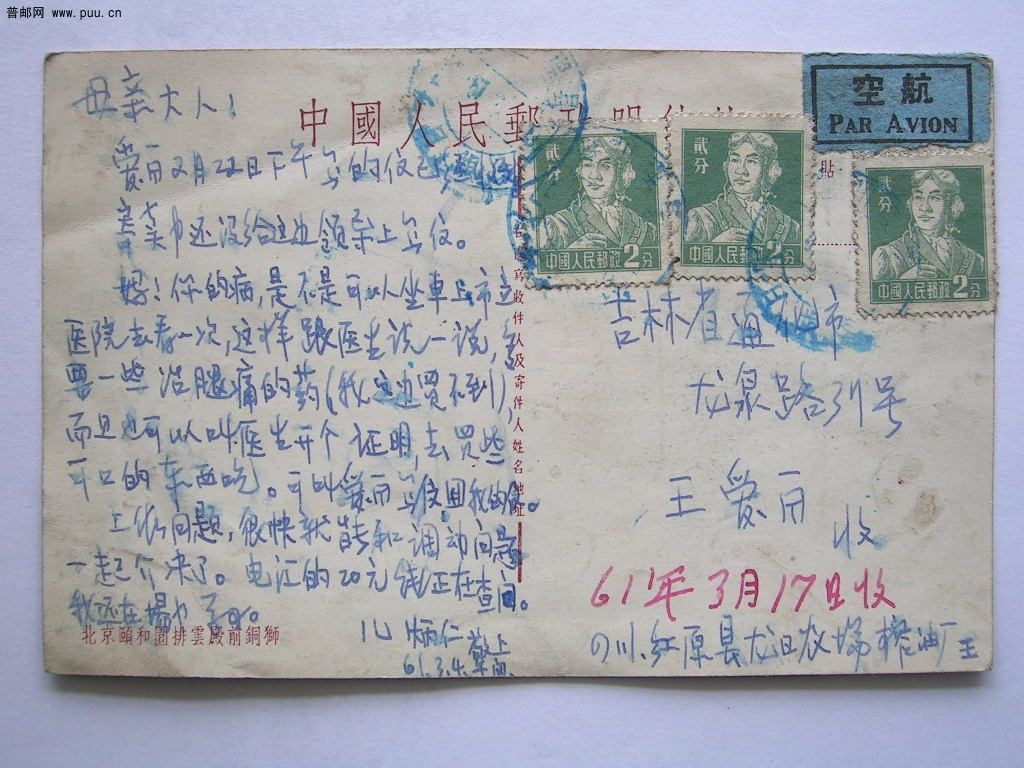 普邮网 www.puu.cn
母亲大人！
中國人民郵政明信片
空航
PAR AVION
贰分
中國人民郵政 2分
贰分
中國人民郵政 2分
贰分
中國人民郵政 2分
贴
爱丽2月22日下午写的仅已
还没给这边领导上写仅。
妈！你的病，是不是可以坐車上市立
医院去看一次，这样跟医生说一说，多
要一些治腿痛的药（我这边買不到），
而且也可以叫医生开个证明，去買些
可口的东西吃。可叫爱丽写仅回我的仅。
问题，很快就能和调动问题
一起介决了。电汇的20元钱正在查问。
我还在場
儿 炳仁 敬上
61.3.4.
寫收件人及寄件人姓名地址
北京頤和園排雲殿前銅獅
吉林省通化市
龙泉路31号
王爱丽
收
61年3月17日收
四川.红原县龙日农場榨油厂王